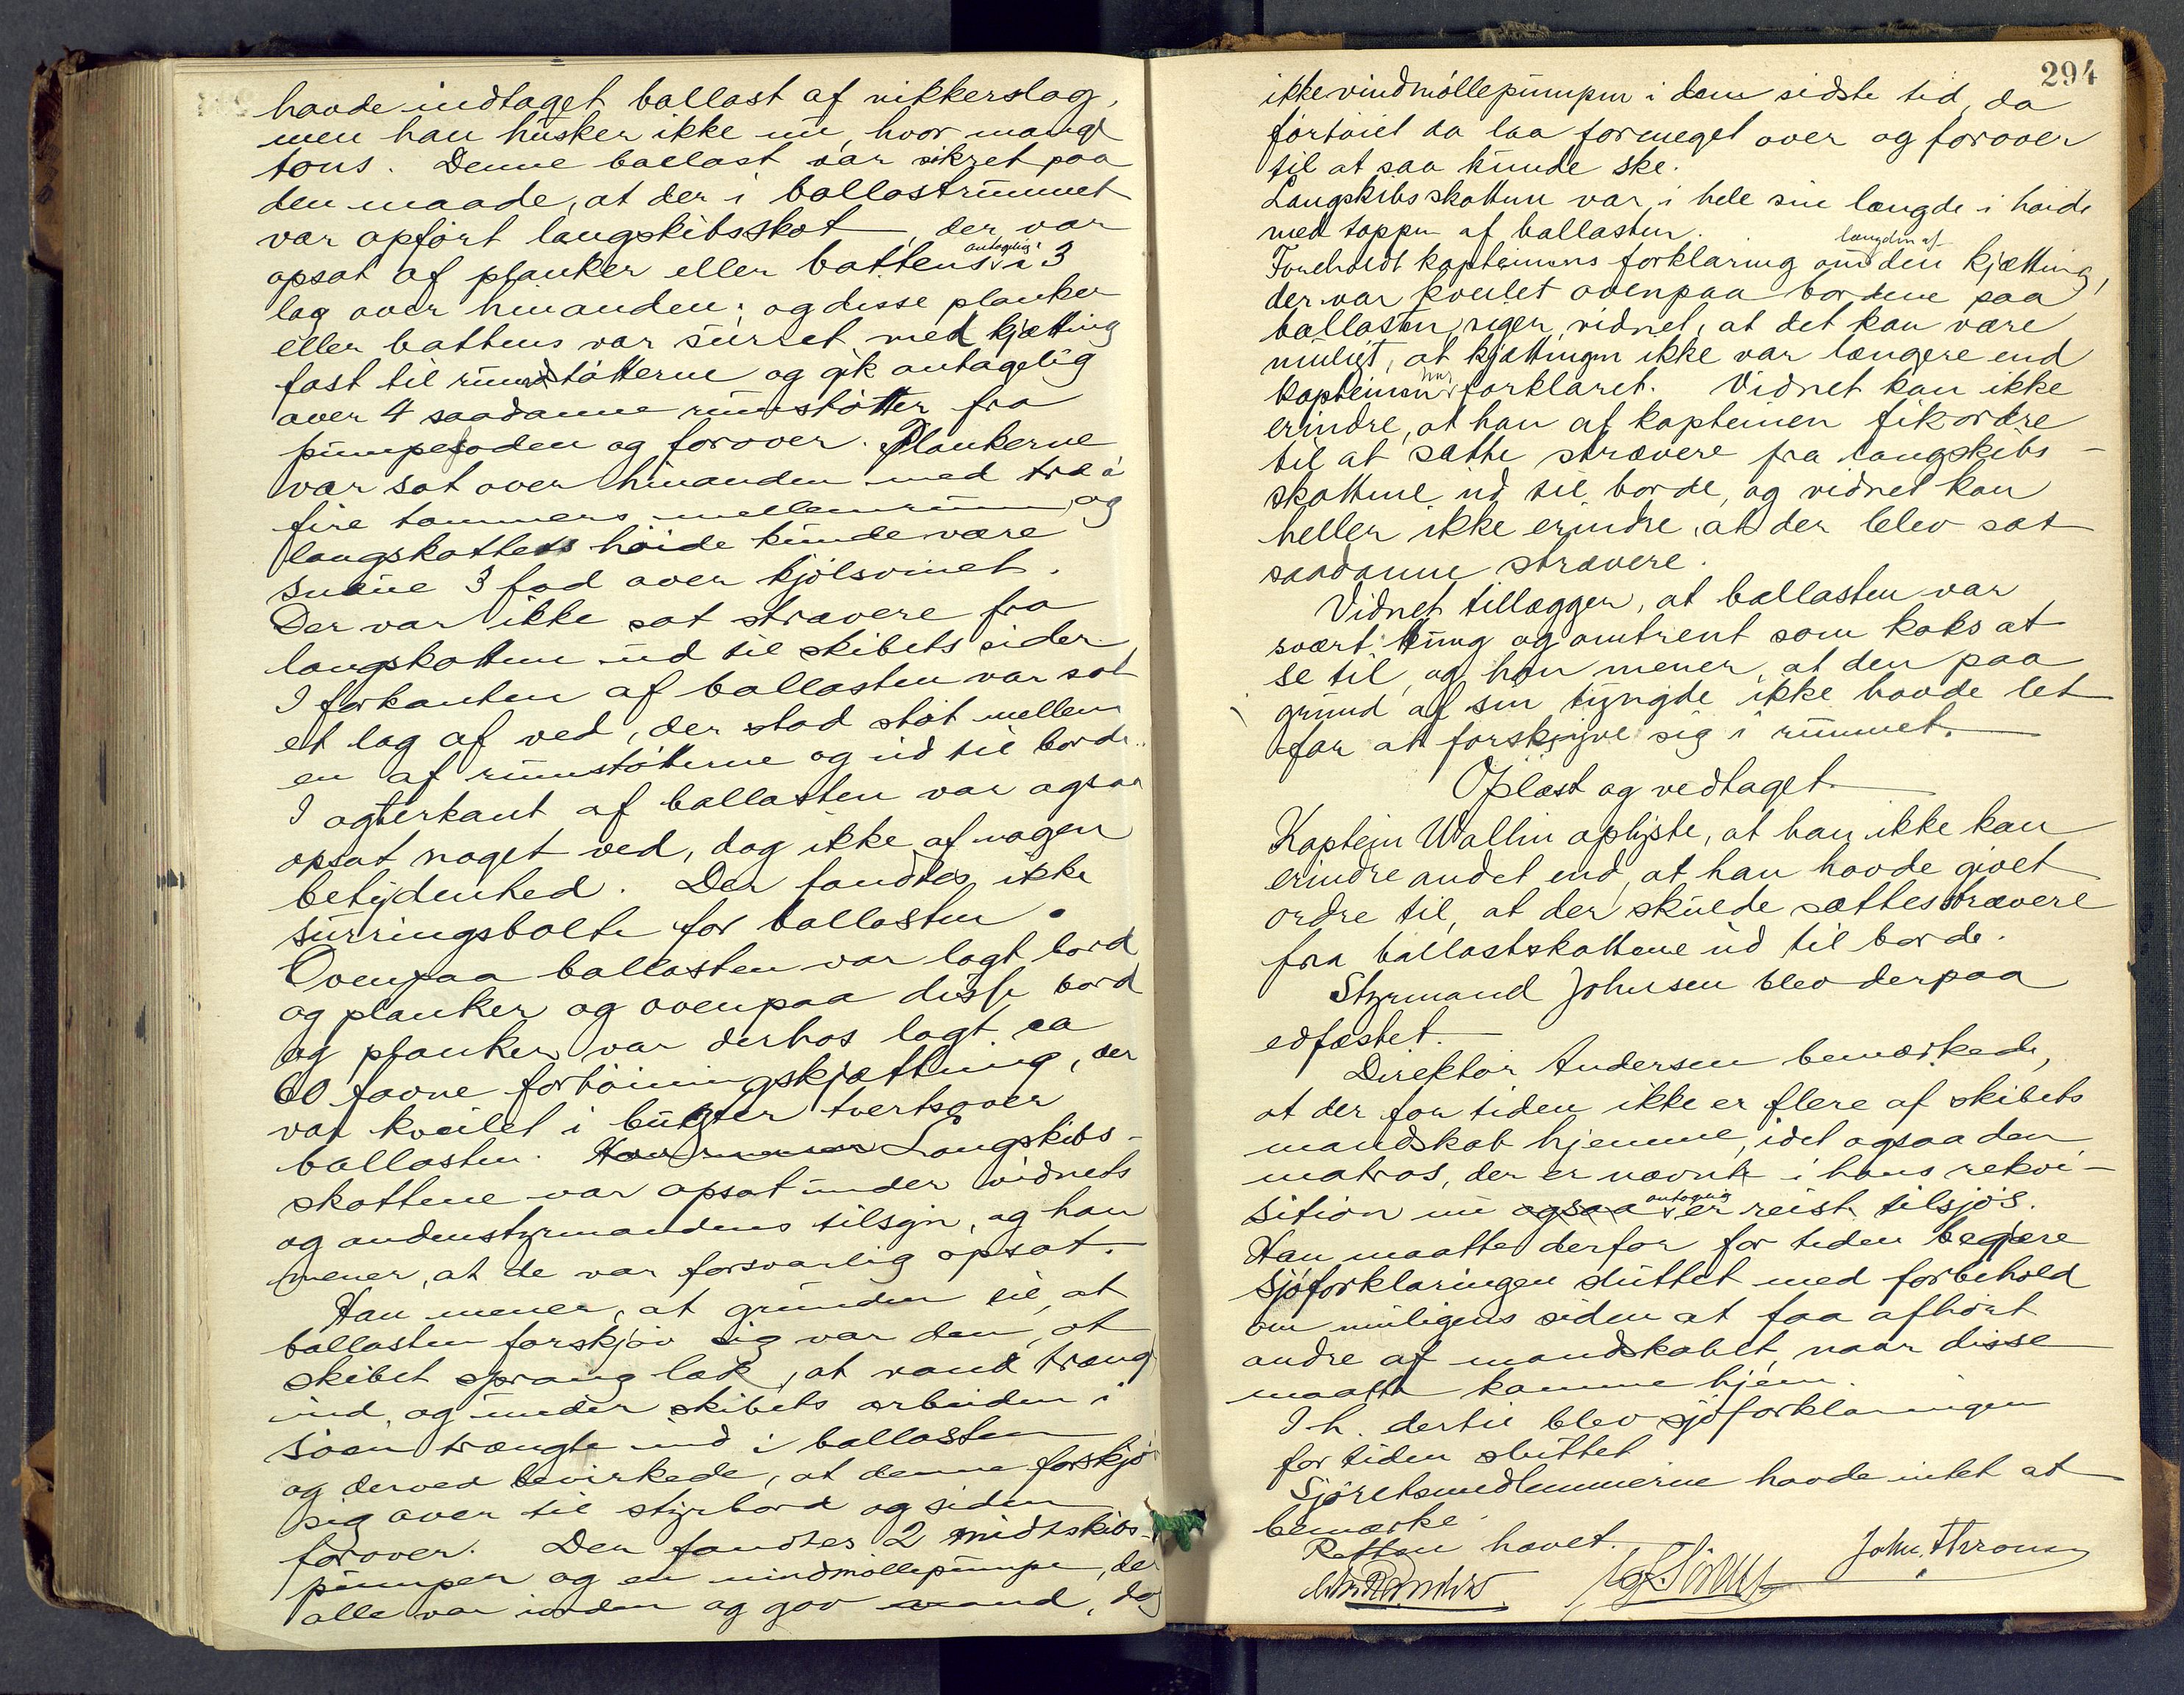 havde indtaget ballast af nikkerslag,
men han husker ikke nu, hvor mange
tons. Denne ballast var sikret paa
den maade, at der i ballastrummet
var opført langskibsskot, der var
opsat af planker eller battens antagelig i 3
lag over hinanden; og disse planker
eller battens var surret med kjætting
fast til rumstøtterne og gik antagelig
over 4 saadanne rumstøtter fra
pumpesoden og forover. Plankerne
var sat over hinanden med tre à
fire tommers mellemrum, og
langskottets høide kunde være
snaue 3 fod over kjølsvinet.
Der var ikke sat strævere fra
langskottene ud til skibets sider.
I forkanten af ballasten var sat
et lag af ved, der stod støt mellem
en af rumstøtterne og ud til borde.
I agterkant af ballasten var ogsaa
opsat noget ved, dog ikke af nogen
betydenhed. Der fandtes ikke
surringsbolte for ballasten.
Ovenpaa ballasten var lagt bord
og planker og ovenpaa disse bord
og planker var derhos lagt ca
60 favne fortøiningskjætting, der
var kveilet i bugter tvertsover
ballasten. Langskibs-
skottene var opsat under vidnets
og andenstyrmandens tilsyn, og han
mener, at de var forsvarlig opsat.
Han mener, at grunden til, at
ballasten forskjøv sig var den, at
skibet sprang læk, at vand trængte
ind, og under skibets arbeiden i
sjøen trængte ind i ballasten
og derved bevirkede, at denne forskjøv
sig over til styrbord og siden
forover. Der fandtes 2 midtskibs-
pumper og en vindmøllepumpe, der
alle var iorden og gav vand, dog
294
ikke vindmøllepumpen i den sidste tid, da
fartøiet da laa formeget over og forover
til at saa kunde ske.
Langskibsskottene var i hele sin længde i høide
med toppen af ballasten.
Foreholdt kapteinens forklaring om længden af den kjætting,
der var kveilet ovenpaa bordene paa
ballasten, siger vidnet, at det kan være
muligt, at kjættingen ikke var længere end
kapteinen har forklaret. Vidnet kan ikke
erindre, at han af kapteinen fik ordre
til at sætte strævere fra langskibs-
skottene ud til borde, og vidnet kan
heller ikke erindre, at der blev sat
saadanne strævere.
Vidnet tillægger, at ballasten var
svært tung og omtrent som koks at
se til, og han mener, at den paa
grund af sin tyngde ikke havde let
for at forskyve sig i rummet.
Oplæst og vedtaget.
Kaptein Wallin oplyste, at han ikke kan
erindre andet end, at han havde givet
ordre til, at der skulde sættes strævere
fra ballastskottene ud til borde.
Styrmand Johnsen blev derpaa
edfæstet.
Direktør Andersen bemærkede,
at der for tiden ikke er flere af skibets
mandskab hjemme, idet ogsaa den
matros, der er nævnt i hans rekvi-
sition nu ogsaa antagelig er reist tilsjøs.
Han maatte derfor for tiden begjære
sjøforklaringen sluttet med forbehold
om muligens siden at faa afhørt
andre af mandskabet, naar disse
maatte komme hjem.
I h. dertil blev sjøforklaringen
for tiden sluttet
Sjøretsmedlemmerne havde intet at
bemærke.
Retten hævet.